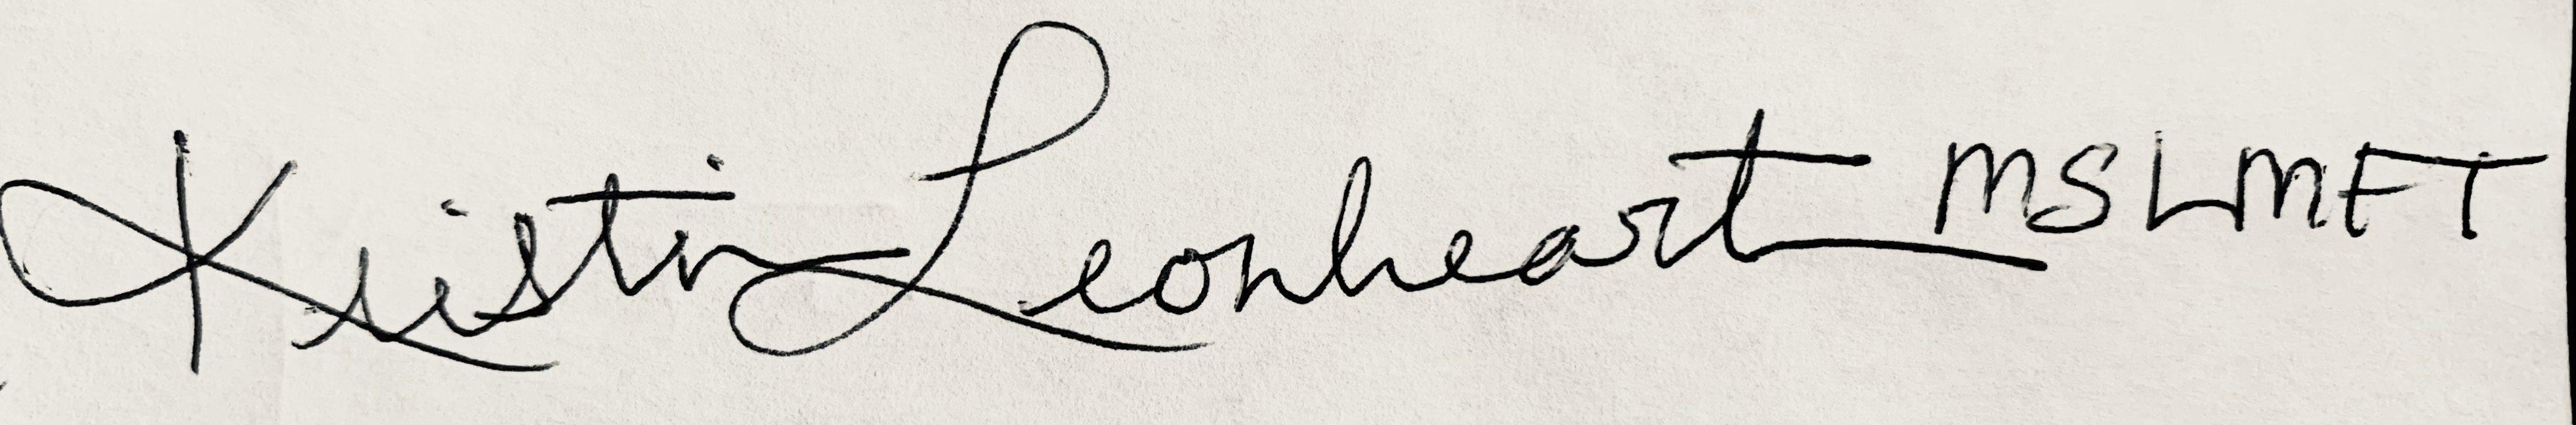 Kristin Leonheart MS LMFT